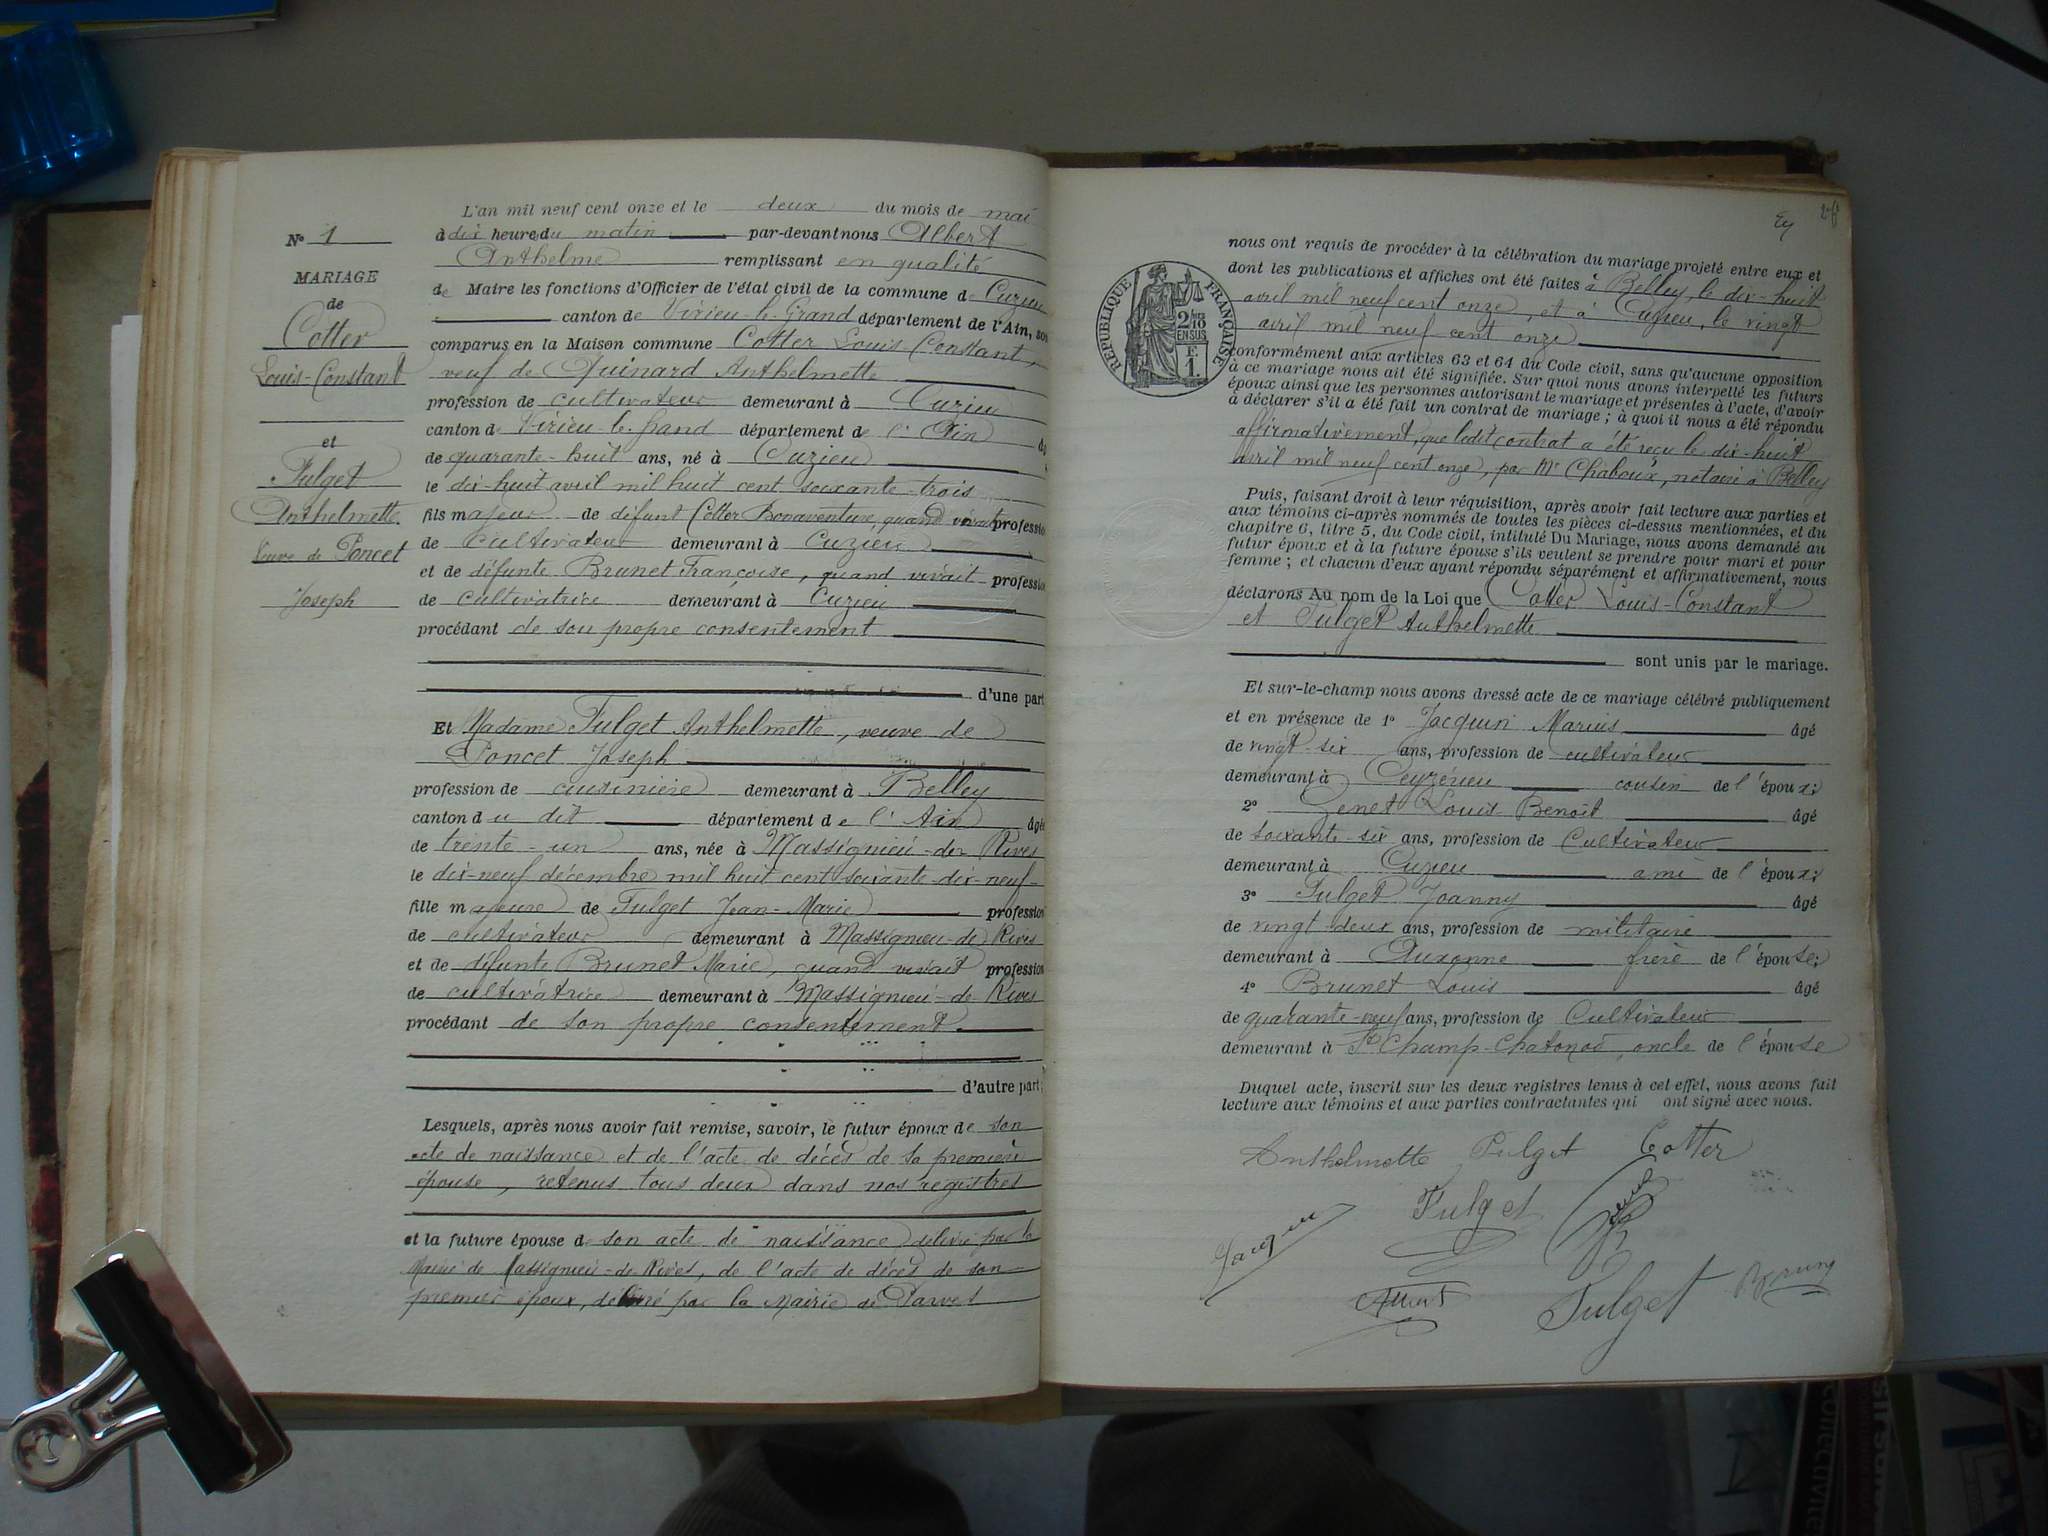 N° 1
MARIAGE
de
Cotter
Louis-Constant
et
Fulget
Anthelmette
Veuve de Poncet
Joseph
L'an mil neuf cent onze et le deux du mois de mai
à dix heure du matin par-devant nous Albert
Anthelme remplissant en qualité
de Maire les fonctions d'Officier de l'état civil de la commune de Cuzieu
canton de Virieu-le-Grand département de l'Ain, son
comparus en la Maison commune Cotter Louis Constant,
veuf de Quinard Anthelmette
profession de cultivateur demeurant à Cuzieu
canton de Virieu-le-grand département de l'Ain âg
de quarante-huit ans, né à Cuzieu
le dix-huit avril mil huit cent soixante-trois
fils majeur de défunt Cotter Bonaventure, quand vivait profession
de cultivateur demeurant à Cuzieu
et de défunte Brunet Françoise, quand vivait profession
de cultivatrice demeurant à Cuzieu
procédant de son propre consentement
d'une part
Et Madame Fulget Anthelmette, veuve de
Poncet Joseph
profession de cuisinière demeurant à Belley
canton du dit département de l'Ain âgée
de trente-un ans, née à Massignieu-de-Rives
le dix-neuf décembre mil huit cent soixante-dix-neuf
fille majeure de Fulget Jean-Marie profession
de cultivateur demeurant à Massignieu-de-Rives
et de défunte Brunet Marie, quand vivait profession
de cultivatrice demeurant à Massignieu-de-Rives
procédant de son propre consentement.
d'autre part;
Lesquels, après nous avoir fait remise, savoir, le futur époux de son
acte de naissance et de l'acte de décès de sa première
épouse, retenus tous deux dans nos registres
et la future épouse de son acte de naissance délivré par la
Mairie de Massignieu-de-Rives, de l'acte de décès de son
premier époux, délivré par la Mairie de Parves
REPUBLIQUE FRANÇAISE
2/10 EN SUS
F. 1.
nous ont requis de procéder à la célébration du mariage projeté entre eux et
dont les publications et affiches ont été faites à Belley, le dix-huit
avril mil neuf cent onze, et à Cuzieu, le vingt
avril mil neuf cent onze
conformément aux articles 63 et 64 du Code civil, sans qu'aucune opposition
à ce mariage nous ait été signifiée. Sur quoi nous avons interpellé les futurs
époux ainsi que les personnes autorisant le mariage et présentes à l'acte, d'avoir
à déclarer s'il a été fait un contrat de mariage ; à quoi il nous a été répondu
affirmativement, que ledit contrat a été reçu le dix-huit
avril mil neuf cent onze, par Mr Chaboux, notaire à Belley
Puis, faisant droit à leur réquisition, après avoir fait lecture aux parties et
aux témoins ci-après nommés de toutes les pièces ci-dessus mentionnées, et du
chapitre 6, titre 5, du Code civil, intitulé Du Mariage, nous avons demandé au
futur époux et à la future épouse s'ils veulent se prendre pour mari et pour
femme ; et chacun d'eux ayant répondu séparément et affirmativement, nous
déclarons Au nom de la Loi que Cotter Louis-Constant
et Fulget Anthelmette
sont unis par le mariage.
Et sur-le-champ nous avons dressé acte de ce mariage célébré publiquement
et en présence de 1° Jacquin Marius âgé
de vingt-six ans, profession de cultivateur
demeurant à Ceyzérieu cousin de l'époux;
2° Genet Louis Benoît âgé
de soixante-six ans, profession de Cultivateur
demeurant à Cuzieu ami de l'époux;
3° Fulget Joanny âgé
de vingt-deux ans, profession de militaire
demeurant à Auxonne frère de l'épouse;
4° Brunet Louis âgé
de quarante-neuf ans, profession de Cultivateur
demeurant à St Champ-Chatonod, oncle de l'épouse
Duquel acte, inscrit sur les deux registres tenus à cet effet, nous avons fait
lecture aux témoins et aux parties contractantes qui ont signé avec nous.
Anthelmette Fulget Cotter
Jacquin Fulget
Albert Fulget Brunet